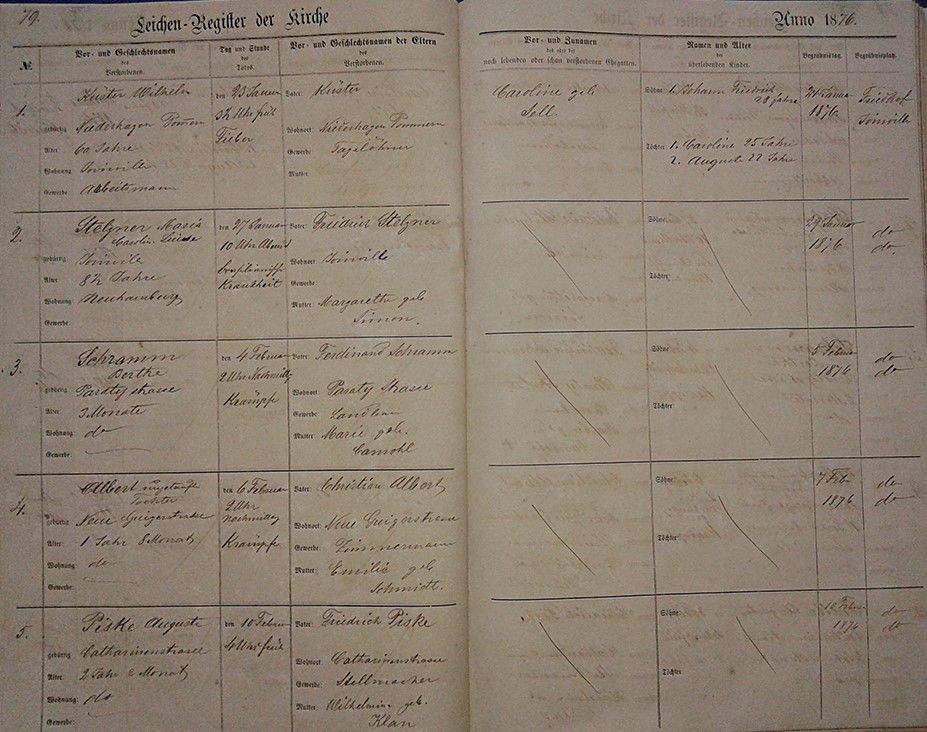 79. Leichen-Register der Kirche Anno 1876.
№
Vor- und Geschlechtsnamen des Verstorbenen.
Tag und Stunde des Todes.
Vor- und Geschlechtsnamen der Eltern des Verstorbenen.
Vor- und Zunamen des oder der noch lebenden oder schon verstorbenen Ehegatten.
Namen und Alter der überlebenden Kinder.
Begräbnißtag.
Begräbnißplatz.
1.
Küster Wilhelm
gebürtig Niederhagen Pommern
Alter 60 Jahre
Wohnung Joinville
Gewerbe: Arbeitsmann
den 23 Januar
3½ Uhr früh
Fieber
Vater: Küster
Wohnort: Niederhagen Pommern
Gewerbe: Tagelöhner
Mutter:
Caroline geb
Sell.
Söhne: 1. Johann Friedrich
28 Jahre
Töchter: 1. Caroline 25 Jahre
2. Auguste 22 Jahre
24 Januar
1876
Friedhof
Joinville
2.
Stelzner Maria
Carolin. Luise
gebürtig Joinville
Alter 8½ Jahre
Wohnung: Neuhamburg
Gewerbe:
den 27 Januar
10 Uhr Abends
brasilianische
Krankheit
Vater: Friedrich Stelzner
Wohnort: Joinville
Gewerbe:
Mutter: Margarethe geb
Simon.
Söhne:
Töchter:
29 Januar
1876
do
do.
3.
Schramm
Berthe
gebürtig Paratystrasse
Alter: 3 Monate
Wohnung: do
Gewerbe:
den 4 Februar
2 Uhr Nachmittg
Krämpfe
Vater: Ferdinand Schramm
Wohnort: Paraty Strasse
Gewerbe:
Mutter Marie geb.
Söhne:
Töchter:
5 Februar
1876
do
do
4.
Albert ungetaufte
Tochter
gebürtig Neue
Alter: 1 Jahr 8 Monat
Wohnung: do
Gewerbe:
den 6 Februar
2 Uhr
Nachmittag
Krämpfe
Vater: Christian Albert
Wohnort: Neue
Gewerbe: Zimmermann
Mutter: Emilie geb
Schmidt.
Söhne:
Töchter:
7 Febr
1876
do
do
5.
Piske Auguste
gebürtig Catharinenstrasse
Alter: 2 Jahr 2 Monat
Wohnung: do
Gewerbe:
den 10 Februar
4 Uhr früh
Vater: Friedrich Piske
Wohnort Catharinenstrasse
Gewerbe: Stellmacher
Mutter Wilhelmine geb.
Klan
Söhne:
Töchter
Febru
1876
do
do